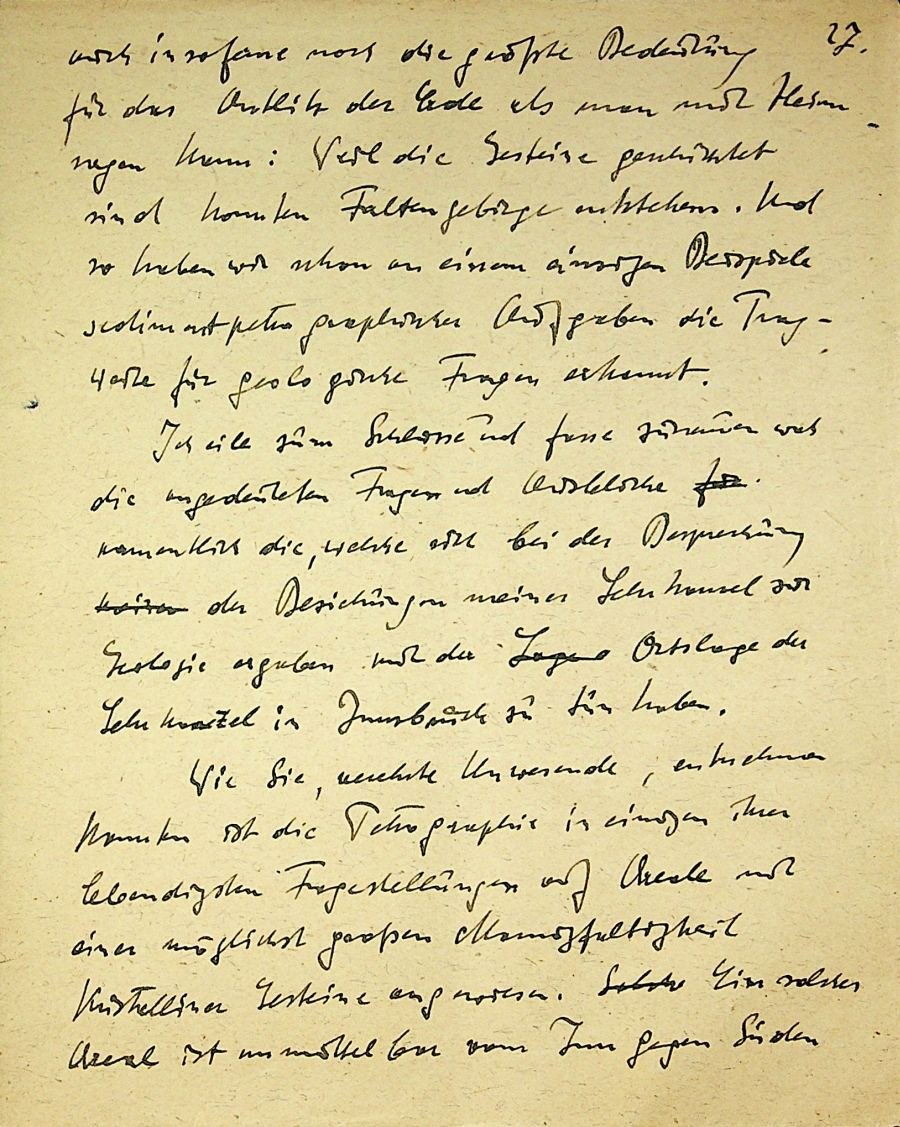 27.
auch insoferne noch die größte Bedeutung
für das Antlitz der Erde als man mit Heim
sagen kann: Weil die Gesteine geschichtet
sind konnten Faltengebirge entstehen. Und
so haben wir schon an einem einzigen Beispiele
sedimentpetrographischer Aufgaben die Trag-
weite für geologische Fragen erkannt.
Ich eile zum Schlusse und fasse zusammen was
die angedeuteten Fragen und Ausblicke für
namentlich die, welche sich bei der Besprechung
der Beziehungen meiner Lehrkanzel zur
Geologie ergaben mit der Lage Ortslage der
Lehrkanzel in Innsbruck zu tün haben.
Wie Sie, verehrte Anwesende, entnehmen
konnten ist die Petrographie in einigen ihrer
lebendigsten Fragestellungen auf Areale mit
einer möglichst großen Mannigfaltigkeit
kristalliner Gesteine angewiesen. Solche Ein solches
Areal ist unmittelbar vom Inn gegen Süden